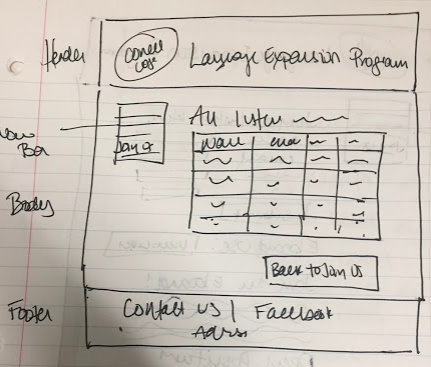 Header
Cornell
Logo
Language Expansion Program
Bar
Join Us
All listen
Name
Email
Body
Back to Join Us
Footer
Contact Us | Facebook
Address